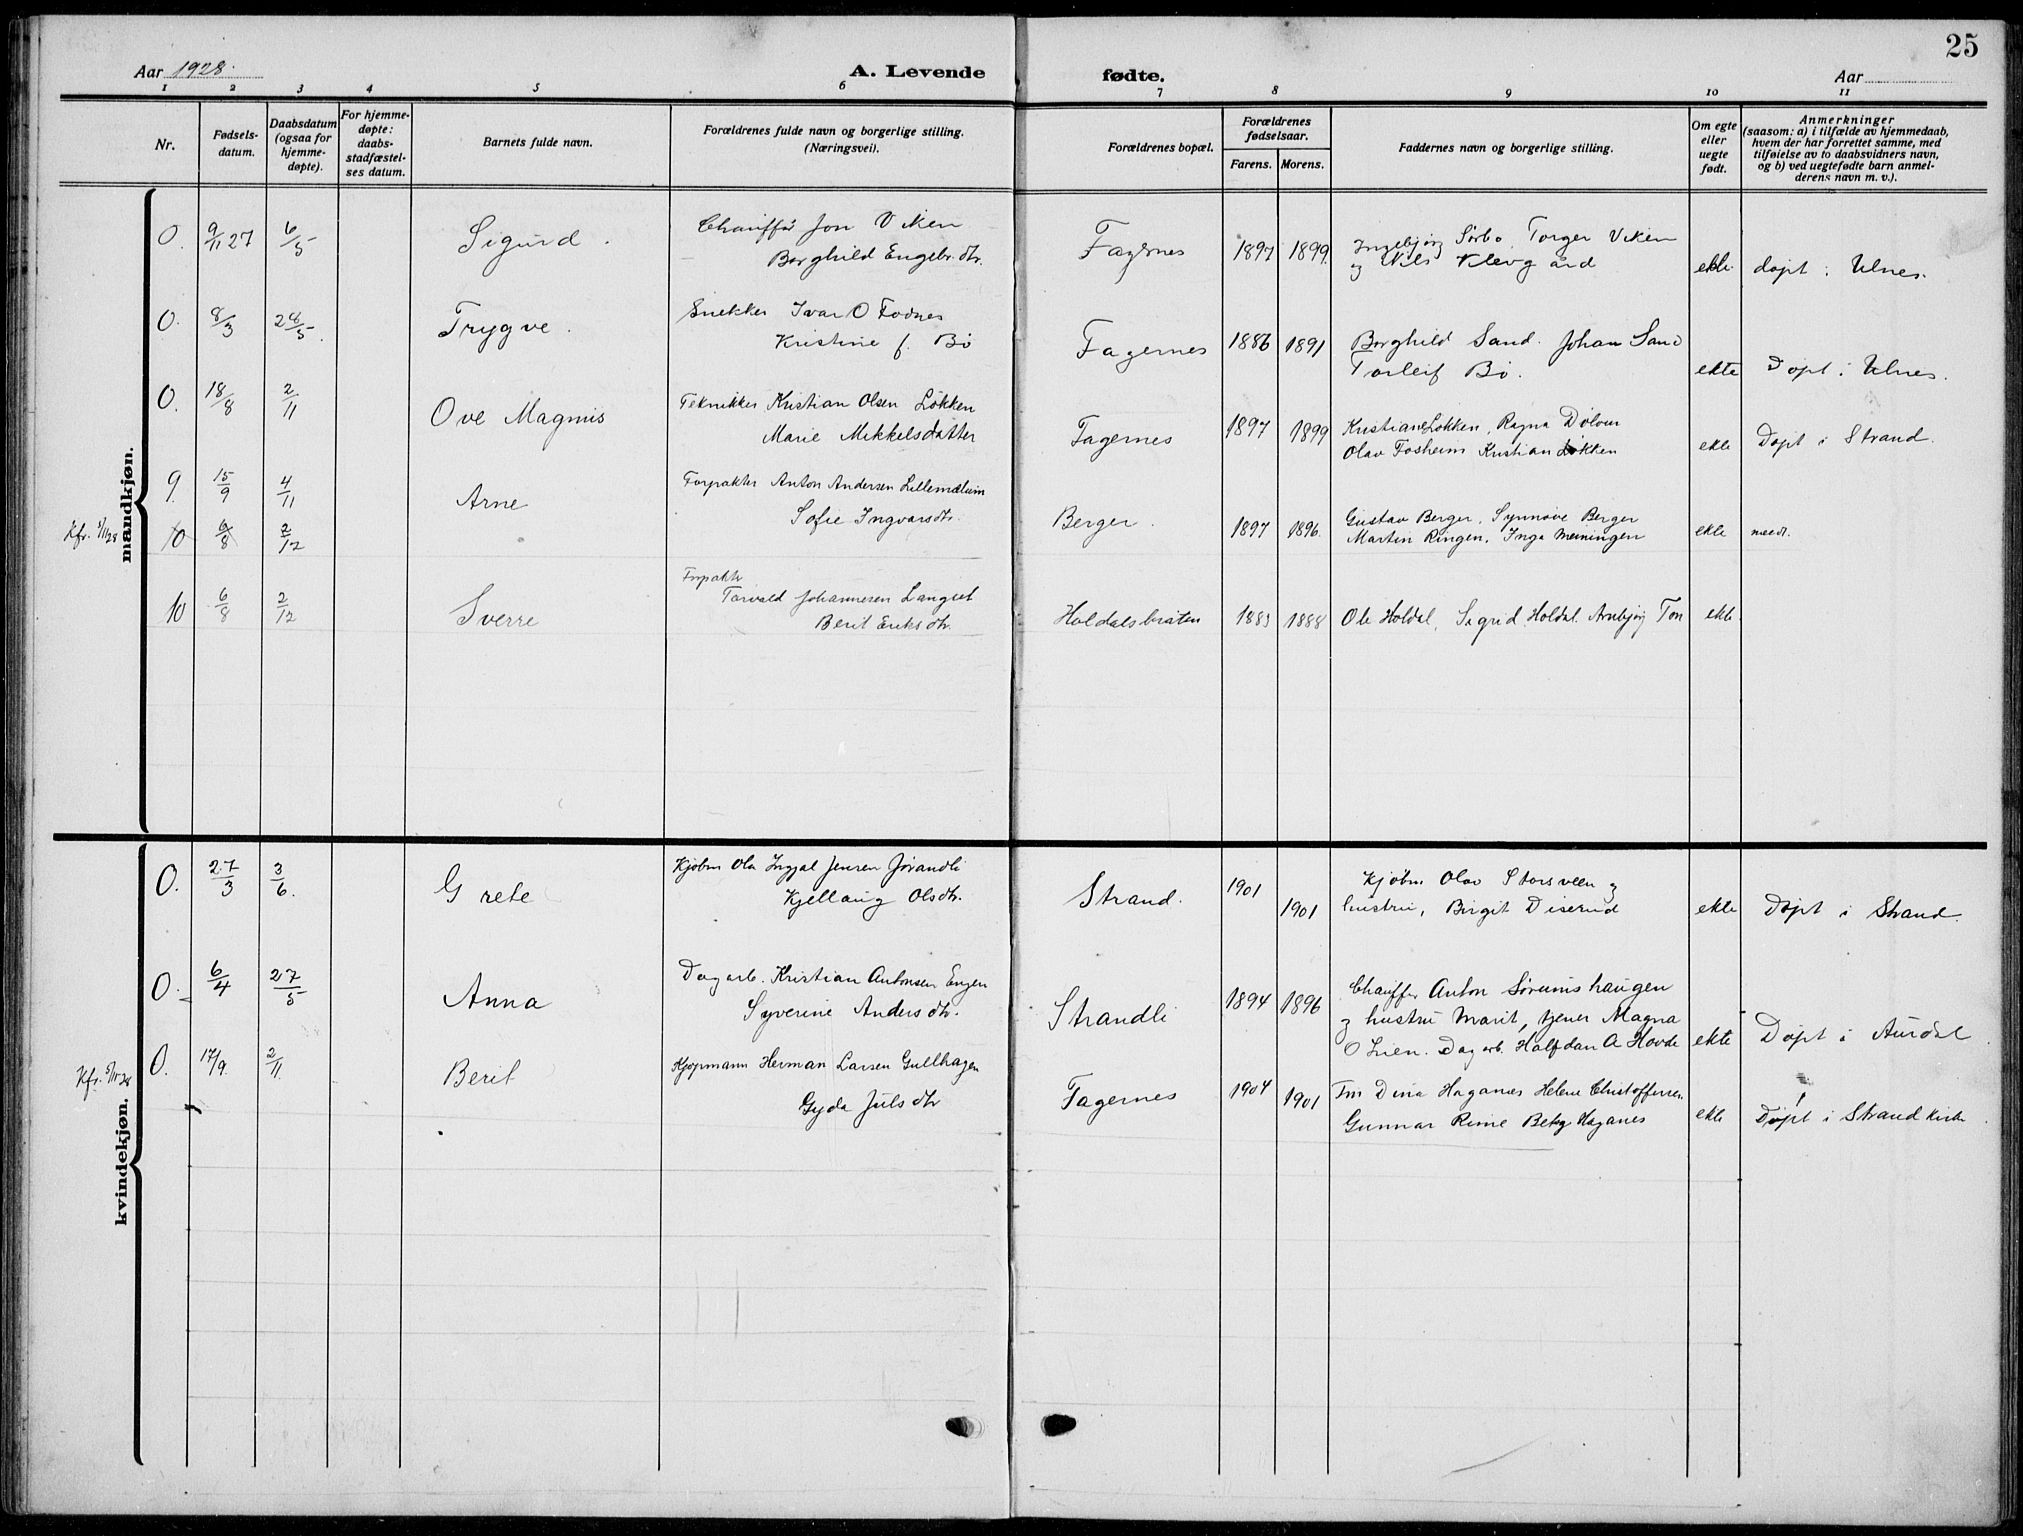 25
Aar 1928.
A. Levende fødte.
Aar
1 2 3 4 5 6 7 8 9 10 11
Nr.
Fødsels-
datum.
Daabsdatum
(ogsaa for
hjemme-
døpte).
For hjemme-
døpte:
daabs-
stadfæstel-
ses datum.
Barnets fulde navn.
Forældrenes fulde navn og borgerlige stilling.
(Næringsvei).
Forældrenes bopæl.
Forældrenes
fødselsaar.
Farens. Morens.
Faddernes navn og borgerlige stilling.
Om egte
eller
uegte
født.
Anmerkninger
(saasom: a) i tilfælde av hjemmedaab,
hvem der har forrettet samme, med
tilføielse av to daabsvidners navn,
og b) ved uegtefødte barn anmel-
derens navn m. v.).
mandkjøn.
0. 9/11 27 6/5 Sigurd. Chauffør Jon Viken
Borghild Engebr.dtr.
Fagernes 1897 1899. Ingebjørg Sørbo, Torger Viken
og Nils Klevgård
ekte. døpt i Ulnes.
0. 8/3 28/5. Trygve. Snekker Ivar O Fodnes
Kristine f. Bø
Fagernes 1886 1891 Borghild Sand. Johan Sand
Torleif Bø.
ekte Døpt i Ulnes.
0. 18/8 2/11 Ove Magnus Tekniker Kristian Olsen Løkken
Marie Mikkelsdatter
Fagernes 1897 1899 Kristiane Løkken, Ragna Dølven
Olav Fosheim Kristian Løkken
ekte Døpt i Strand.
9. 15/9 4/11 Arne Forpakter Anton Andersen Lillemælum
Sofie Ingvarsdtr.
Berger. 1897 1896. Gustav Berger, Synnøve Berger
Martin Ringen, Inga Meiningen
ekte
Kfr. 5/11 28 10 6/8 2/12
10 6/8 2/12 Sverre Forpakter
Torvald Johannesen Langset
Berit Eriksdtr.
Holdalsbråten 1883 1888 Ole Holdal, Sigrid Holdal. Arnbjørg Ton ekte
kvindekjøn.
0. 27/3 3/6. Grete Kjøbm Ola Ingjal Jensen Jørandli
Kjellaug Olsdtr.
Strand. 1901 1901 Kjøbm Olav Storsveen og
hustru, Birgit Diserud
ekte Døpt i Strand.
0. 6/4 27/5 Anna Dagarb. Kristian Antonsen Engen
Syverine Andersdtr.
Strandli 1894 1896 Chauffør Anton Sørumshaugen
og hustru Marit, tjener Magna
O Lien. Dagarb. Halfdan A Hovde
ekte Døpt i Aurdal
Kfr. 5/11 28 0. 17/9. 2/11 Berit Kjøpmann Herman Larsen Gullhagen
Gyda Julsdtr
Fagernes 1904 1901 Fru Dina Haganes Helene Christoffersen
Gunnar Rime Betsy Haganes
ekte Døpt i Strand kirke